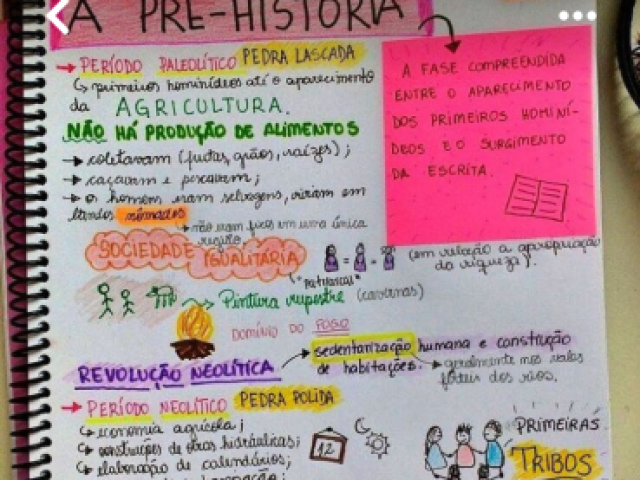 A PRÉ-HISTÓRIA
→ PERÍODO PALEOLÍTICO PEDRA LASCADA
↳ primeiros hominídeos até o aparecimento
da AGRICULTURA.
NÃO HÁ PRODUÇÃO DE ALIMENTOS
→ coletavam (frutas, grãos, raízes);
→ caçavam e pescavam;
→ os homem eram selvagens, viviam em
bandos nômades
→ não eram fixos em uma única
região
A FASE COMPREENDIDA
ENTRE O APARECIMENTO
DOS PRIMEIROS HOMINÍ-
DEOS E O SURGIMENTO
DA ESCRITA.
SOCIEDADE IGUALITÁRIA
= = (em relação a apropriação
da riqueza).
"patriarcal"
→ Pintura rupestre (cavernas)
DOMÍNIO DO FOGO
REVOLUÇÃO NEOLÍTICA → sedentarização humana e construção
de habitações. → geralmente nos vales
férteis dos rios.
→ PERÍODO NEOLÍTICO PEDRA POLIDA
↳ economia agrícola;
↳ construções de obras hidráulicas;
↳ elaboração de calendários;
12
PRIMEIRAS
TRIBOS